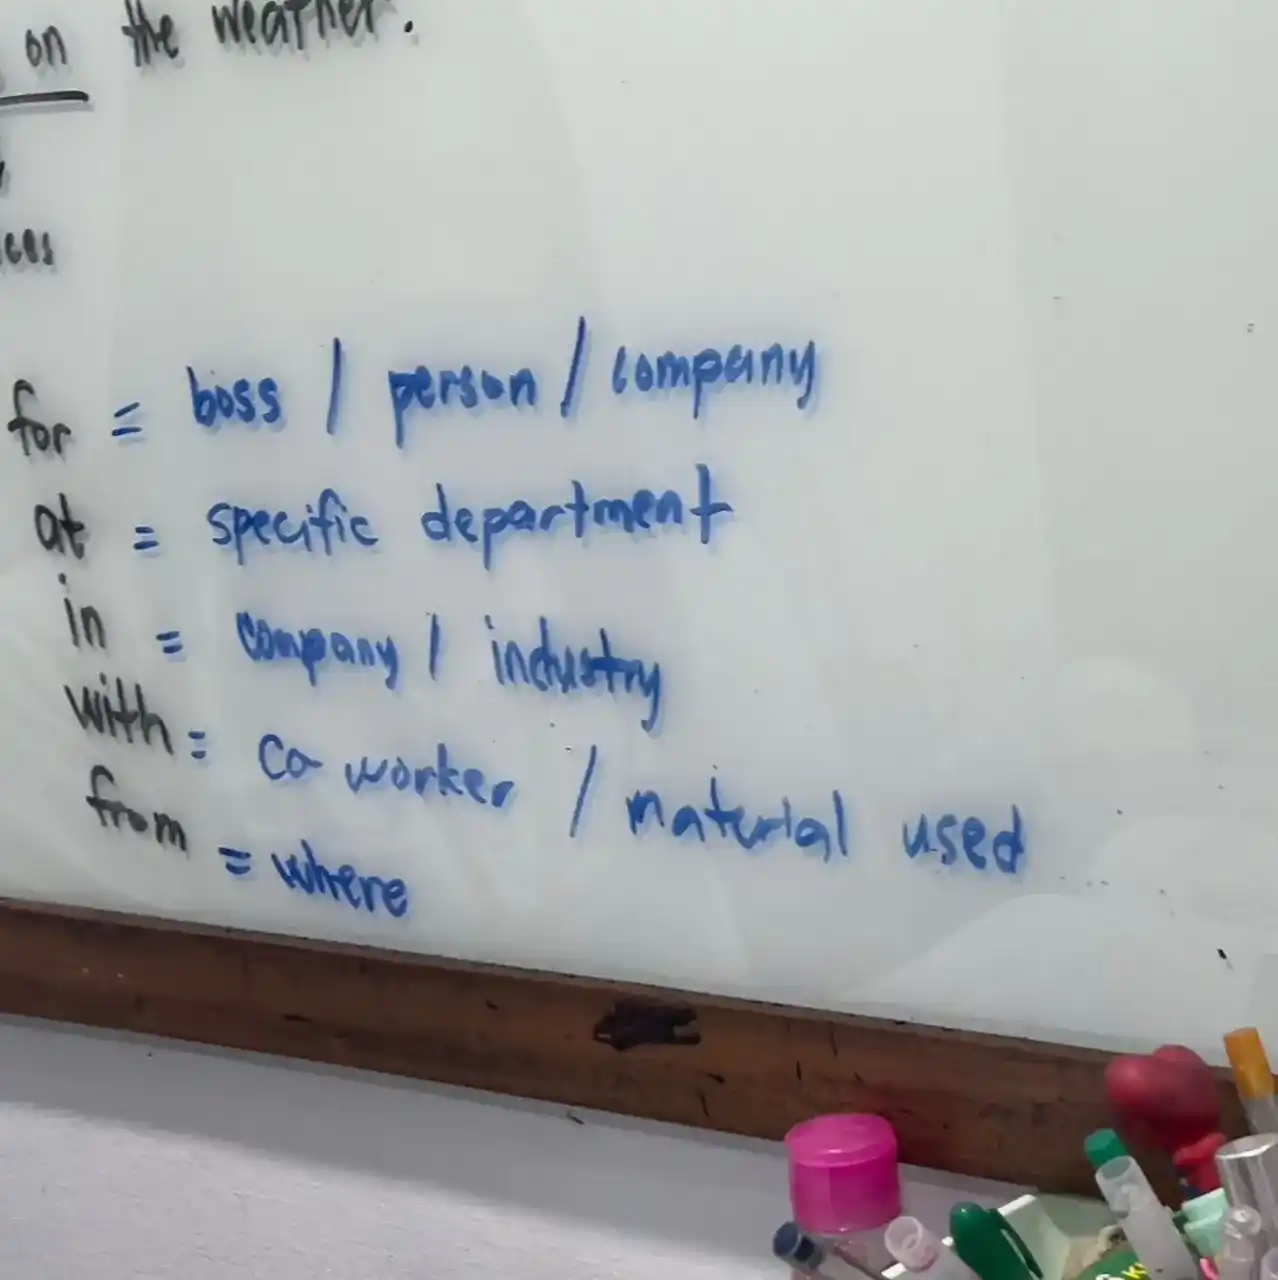 on the weather.
for = boss / person / company
at = specific department
in = company / industry
with = co worker / material used
from = where